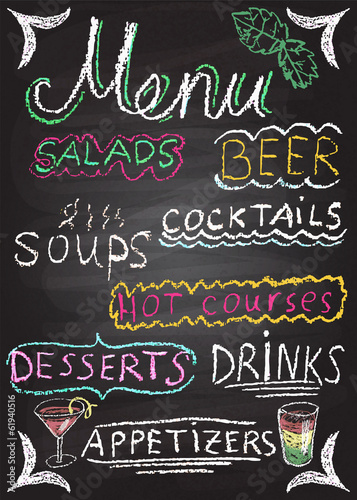 Menu
SALADS
BEER
COCKTAILS
Soups
HOT courses
DESSERTS
DRINKS
APPETIZERS
Adobe Stock | #61940516